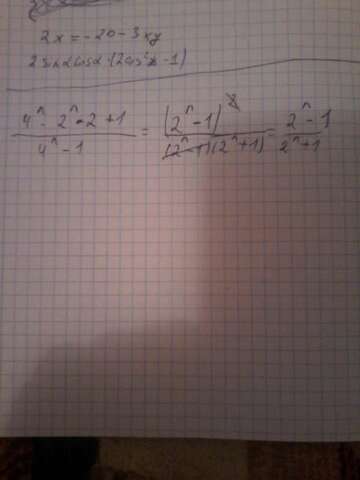 2x = -20 - 3xy
2 sinα cosα (2cos²α - 1)
(4^n - 2^n · 2 + 1) / (4^n - 1) = (2^n - 1)^2 / ((2^n - 1)(2^n + 1)) = (2^n - 1) / (2^n + 1)